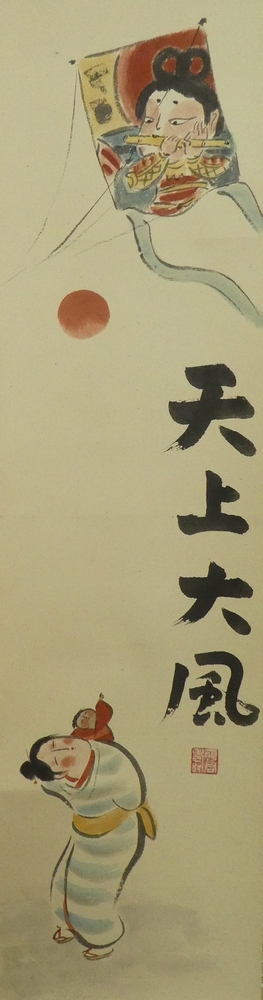 天上大風